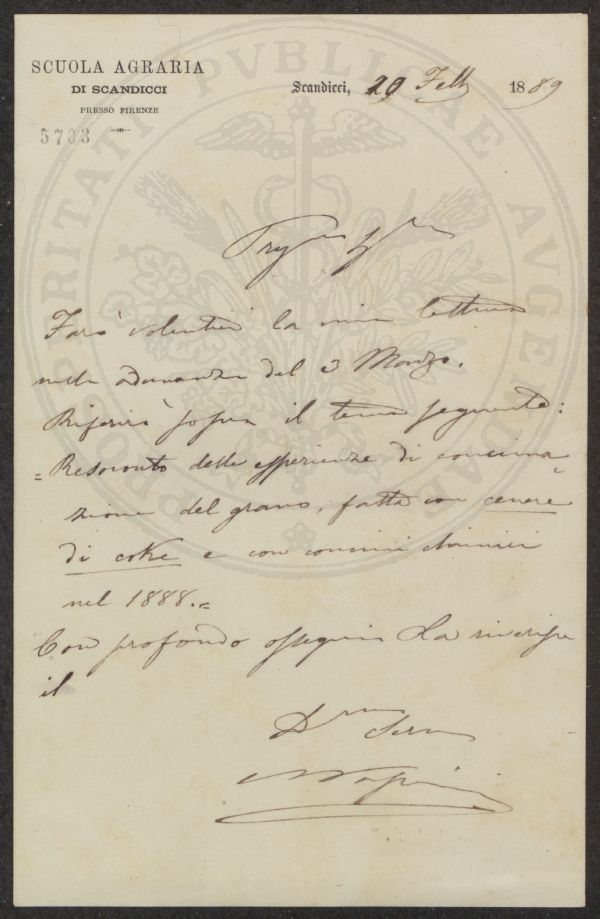 SCUOLA AGRARIA
DI SCANDICCI
PRESSO FIRENZE
5703
Scandicci, 20 Febb 1889
PROSPERITATI PVBLICAE AVGENDAE
Farò volentieri la mia lettura
nella adunanza del 3 Marzo.
Riferirò sopra il tema seguente:
= Resoconto delle esperienze di concima
zione del grano, fatte con cenere
di coke e con concimi chimici
nel 1888.=
Con profondo ossequio La riverisce
il